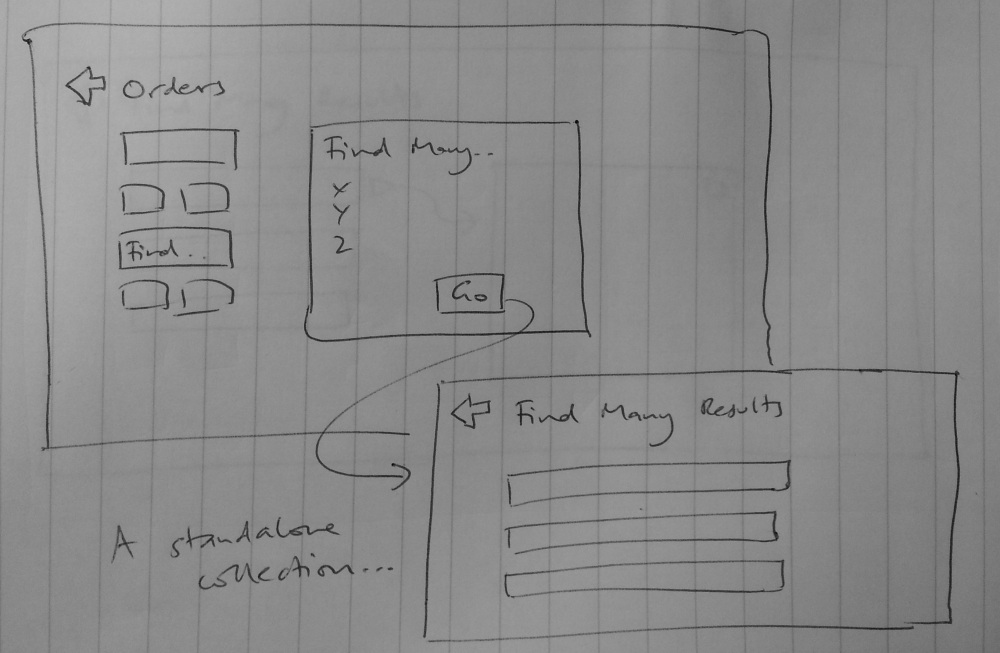 Orders
Find..
Find Many..
X
Y
Z
Go
Find Many Results
A standalone
collection...